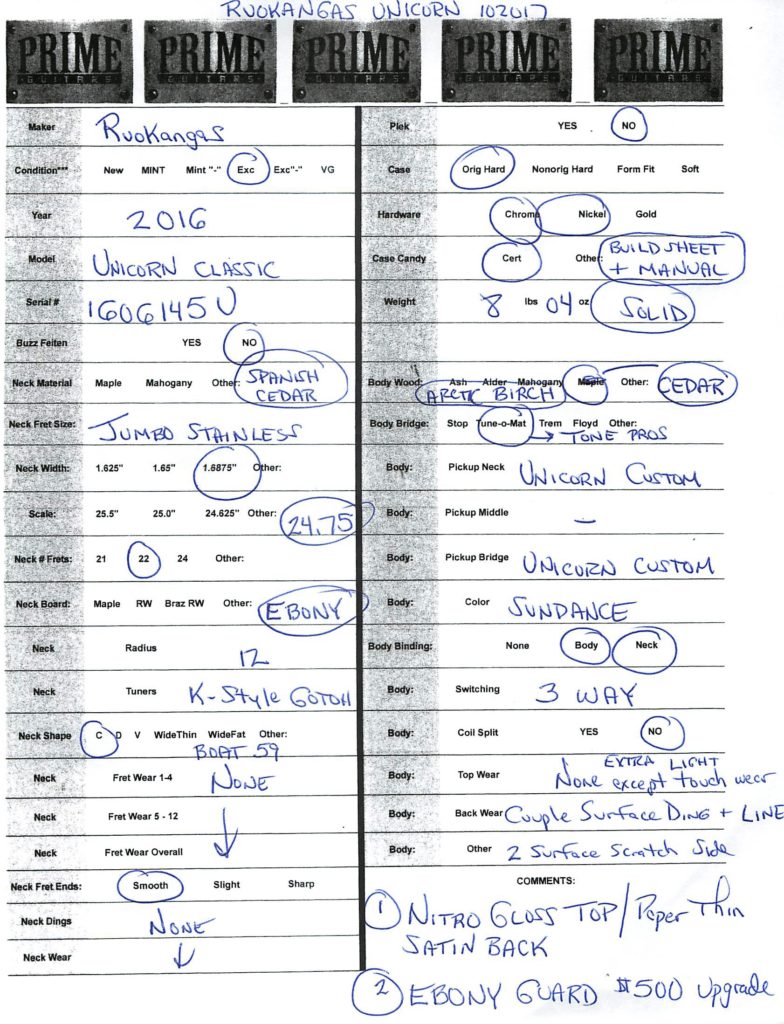 RUOKANGAS UNICORN 102017
PRIME GUITARS PRIME GUITARS PRIME GUITARS PRIME GUITARS PRIME GUITARS
Maker Ruokangas
Condition*** New MINT Mint "-" Exc Exc"-" VG
Year 2016
Model UNICORN CLASSIC
Serial # 1606145U
Buzz Feiten YES NO
Neck Material Maple Mahogany Other: SPANISH
CEDAR
Neck Fret Size: JUMBO STAINLESS
Neck Width: 1.625" 1.65" 1.6875" Other:
Scale: 25.5" 25.0" 24.625" Other: 24.75
Neck # Frets: 21 22 24 Other:
Neck Board: Maple RW Braz RW Other: EBONY
Neck Radius 12
Neck Tuners K-Style GOTOH
Neck Shape C D V WideThin WideFat Other:
BOAT 59
Neck Fret Wear 1-4 NONE
Neck Fret Wear 5 - 12
Neck Fret Wear Overall
Neck Fret Ends: Smooth Slight Sharp
Neck Dings NONE
Neck Wear
Plek YES NO
Case Orig Hard Nonorig Hard Form Fit Soft
Hardware Chrome Nickel Gold
Case Candy Cert Other: BUILD SHEET
+ MANUAL
Weight 8 lbs 04 oz SOLID
Body Wood: Ash Alder Mahogany Maple Other: CEDAR
ARCTIC BIRCH
Body Bridge: Stop Tune-o-Mat Trem Floyd Other:
TONE PROS
Body: Pickup Neck UNICORN CUSTOM
Body: Pickup Middle –
Body: Pickup Bridge UNICORN CUSTOM
Body: Color SUNDANCE
Body Binding: None Body Neck
Body: Switching 3 WAY
Body: Coil Split YES NO
EXTRA LIGHT
Body: Top Wear None except touch wear
Body: Back Wear Couple Surface DING + LINE
Body: Other 2 Surface Scratch Side
COMMENTS:
1 NITRO GLOSS TOP / Paper Thin
SATIN BACK
2 EBONY GUARD $500 Upgrade